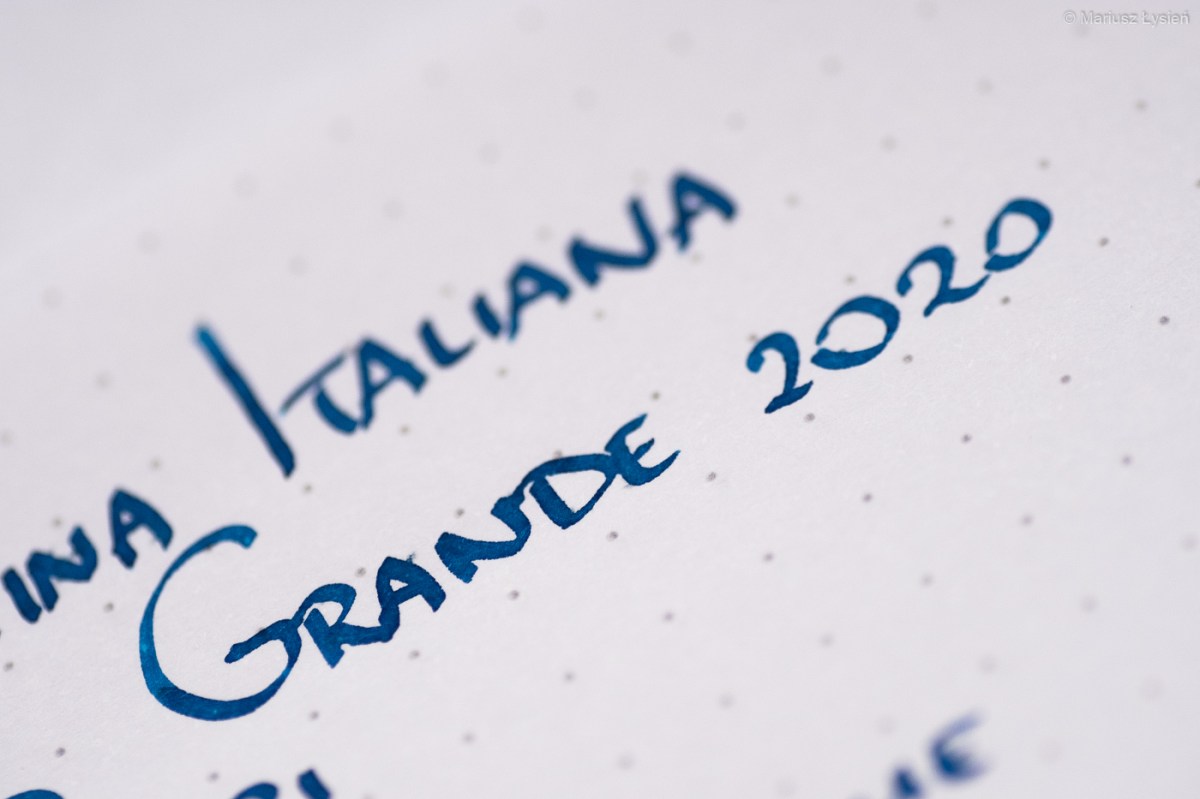 © Mariusz Łysień
INA ITALIANA
GRANDE 2020